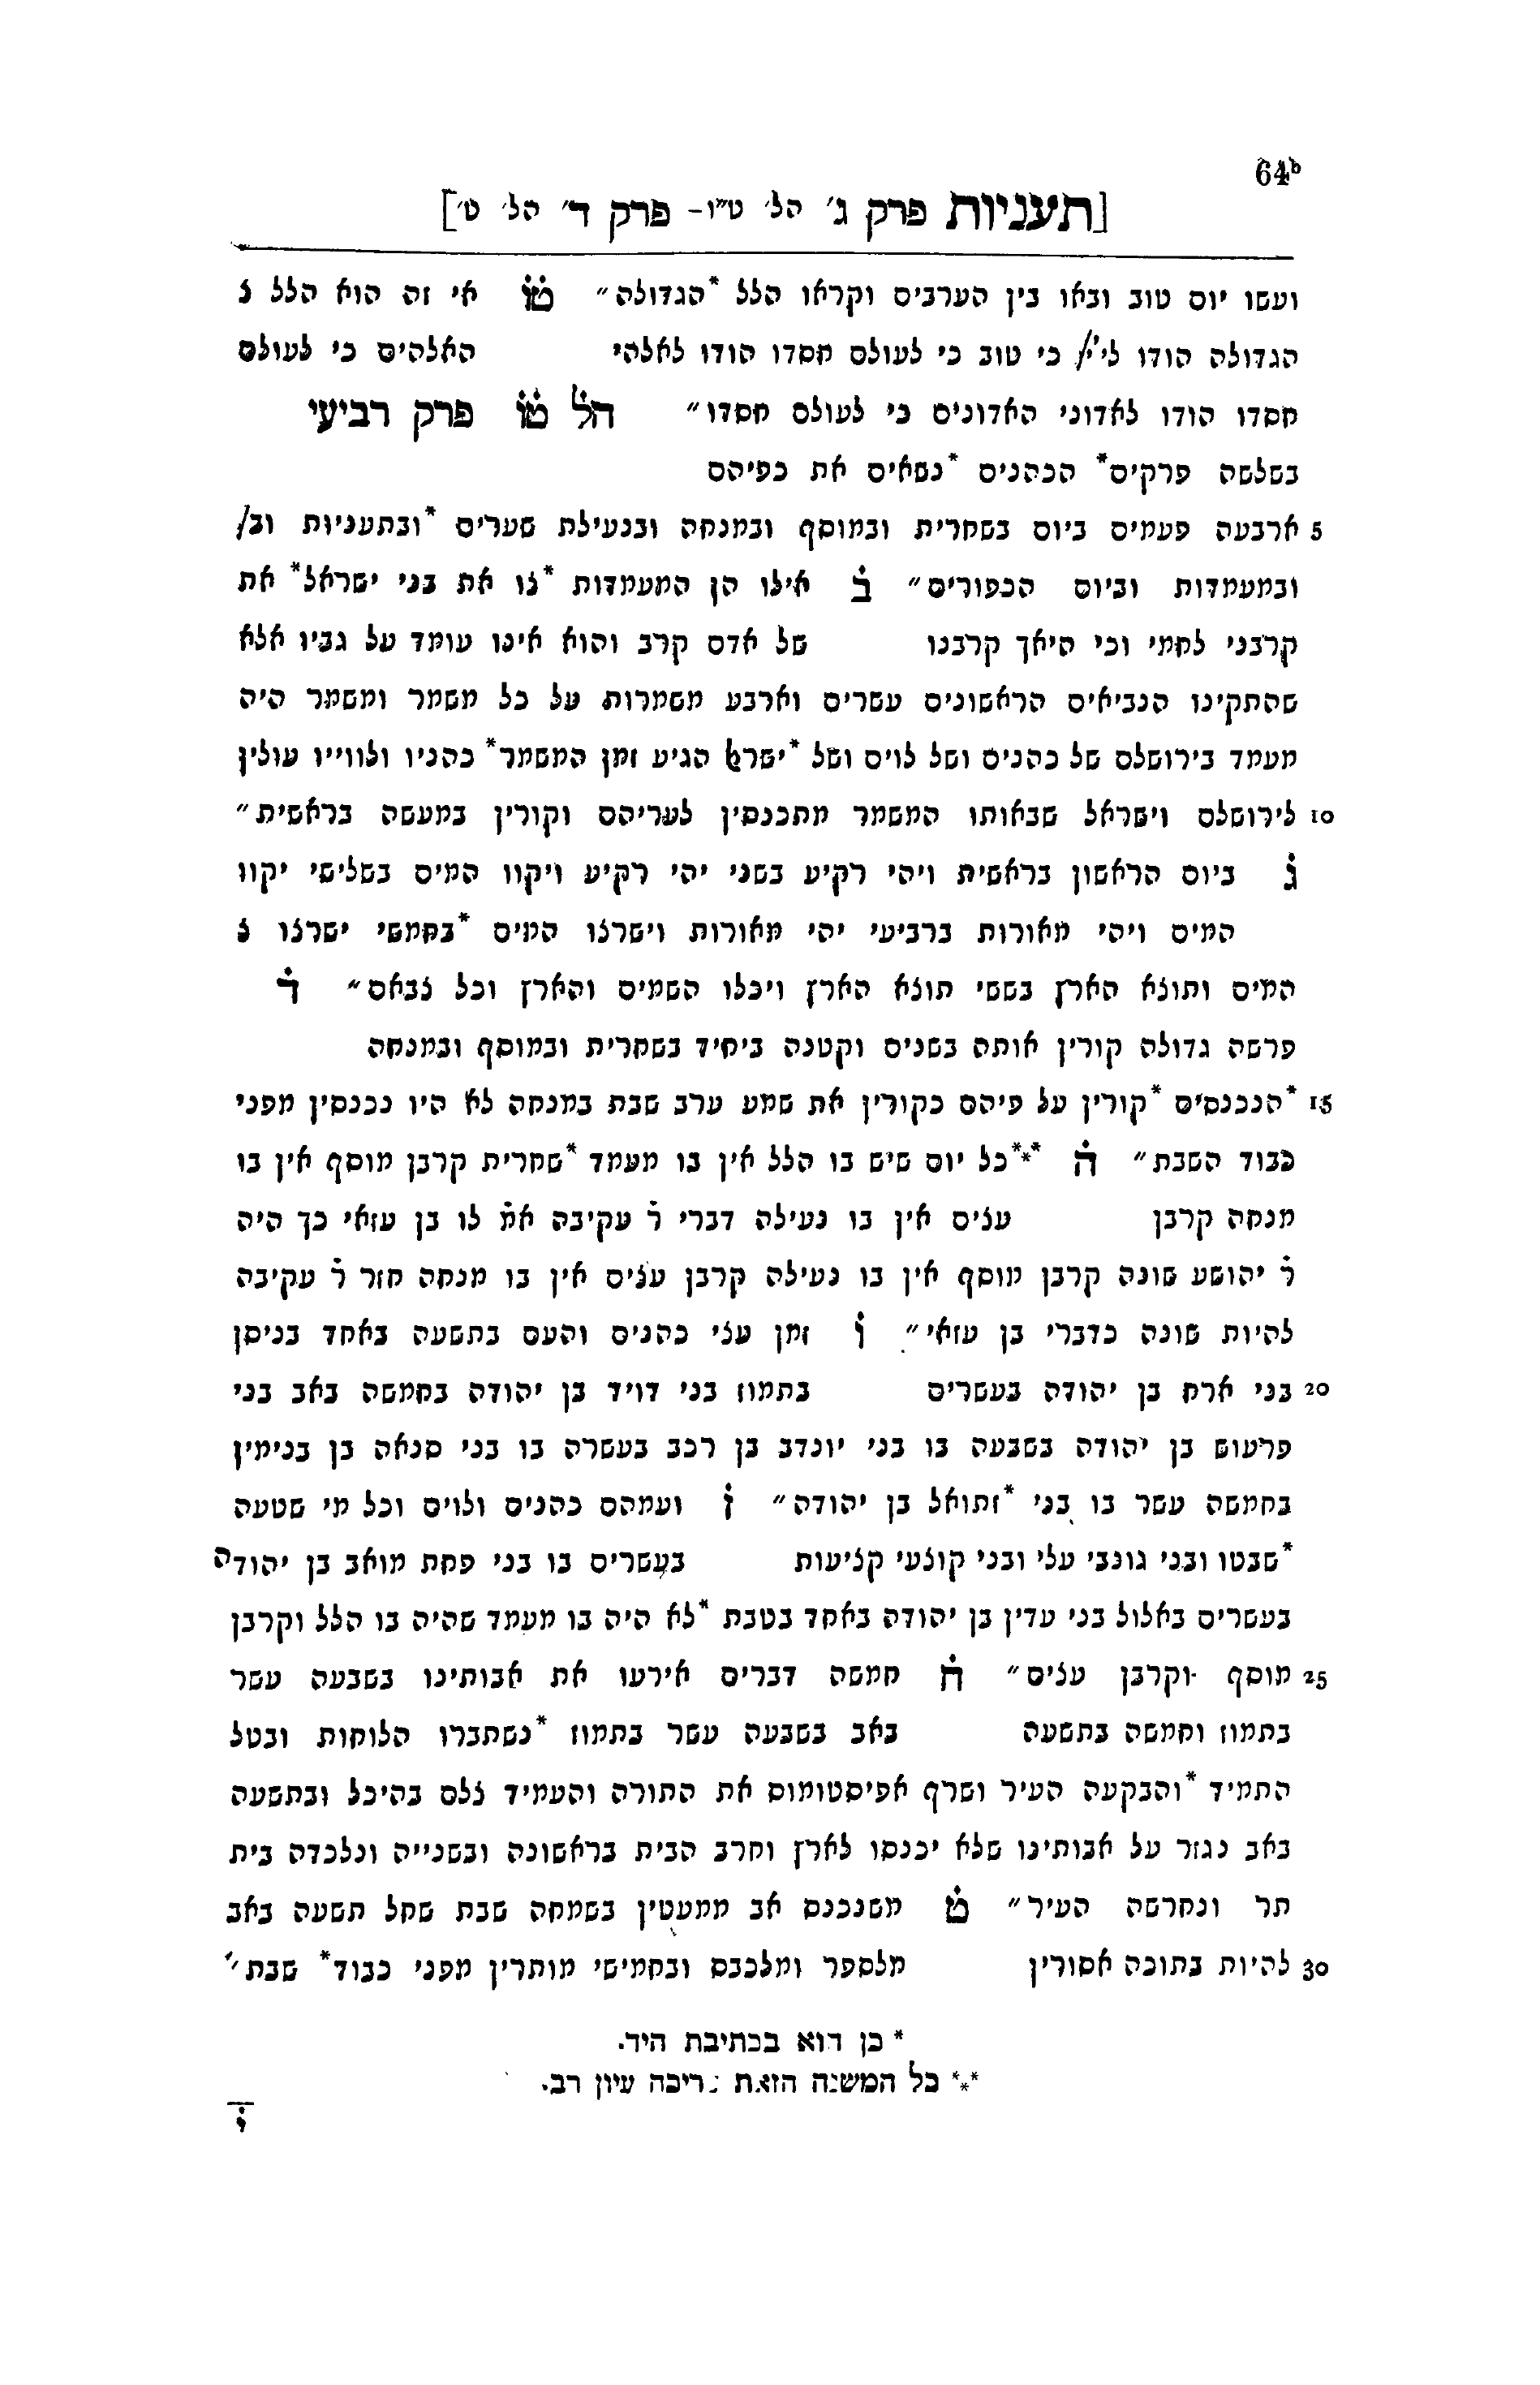 64b
[תעניות פרק ג׳ הל׳ ט״ו- פרק ד׳ הל׳ ט׳]
ועשו יום טוב ובאו בין הערבים וקראו הלל *הגדולה״ טו אי זה הוא הלל
הגדולה הודו לי״/ כי טוב כי לעולם חסדו הודו לאלהי האלהים כי לעולם
חסדו הודו לאדוני האדונים כי לעולם חסדו״ הל טו פרק רביעי
בשלשה פרקים* הכהנים *נשאים את כפיהם
5 ארבעה פעמים ביום בשחרית ובמוסף ובמנחה ובנעילת שערים *ובתעניות וב/
ובמעמדות וביום הכפורים״ ב אילו הן המעמדות *צו את בני ישראל* את
קרבני לחמי וכי היאך קרבנו של אדם קרב והוא אינו עומד על גביו אלא
שהתקינו הנביאים הראשונים עשרים וארבע משמרות על כל משמר ומשמר היה
מעמד בירושלם של כהנים ושל לוים ושל *ישרﭏ הגיע זמן המשמר* כהניו ולווייו עולין
10 לירושלם וישראל שבאותו המשמר מתכנסין לעריהם וקורין במעשה בראשית״
ג ביום הראשון בראשית ויהי רקיע בשני יהי רקיע ויקוו המים בשלישי יקוו
המים ויהי מאורות ברביעי יהי מאורות וישרצו המים *בחמשי ישרצו
המים ותוצא הארץ בששי תוצא הארץ ויכלו השמים והארץ וכל צבאם״ ד
פרשה גדולה קורין אותה בשנים וקטנה ביחיד בשחרית ובמוסף ובמנחה
15 *הנכנסים *קורין על פיהם כקורין את שמע ערב שבת במנחה לא היו נכנסין מפני
כבוד השבת״ ה **כל יום שיש בו הלל אין בו מעמד *שחרית קרבן מוסף אין בו
מנחה קרבן עצים אין בו נעילה דברי ר׳ עקיבה אמ׳ לו בן עזאי כך היה
ר׳ יהושע שונה קרבן מוסף אין בו נעילה קרבן עצים אין בו מנחה חזר ר׳ עקיבה
להיות שונה כדברי בן עזאי״ ו זמן עצי כהנים והעם בתשעה באחד בניסן
20 בני ארח בן יהודה בעשרים בתמוז בני דויד בן יהודה בחמשה באב בני
פרעוש בן יהודה בשבעה בו בני יונדב בן רכב בעשרה בו בני סנאה בן בנימין
בחמשה עשר בו בני *זתואל בן יהודה״ ז ועמהם כהנים ולוים וכל מי שטעה
*שבטו ובני גונבי עלי ובני קוצעי קציעות בעשרים בו בני פחת מואב בן יהודה
בעשרים באלול בני עדין בן יהודה באחד בטבת *לא היה בו מעמד שהיה בו הלל וקרבן
25 מוסף וקרבן עצים״ ח חמשה דברים אירעו את אבותינו בשבעה עשר
בתמוז וחמשה בתשעה באב בשבעה עשר בתמוז *נשתברו הלוחות ובטל
התמיד *והבקעה העיר ושרף אפיסטומוס את התורה והעמיד צלם בהיכל ובתשעה
באב נגזר על אבותינו שלא יכנסו לארץ וחרב הבית בראשונה ובשנייה ונלכדה בית
תר ונחרשה העיר״ ט משנכנס אב ממעטין בשמחה שבת שחל תשעה באב
30 להיות בתוכה אסורין מלספר ומלכבס ובחמישי מותרין מפני כבוד* שבת״
* כן הוא בכתיבת היד.
** כל המשנה הזאת צריכה עיון רב.